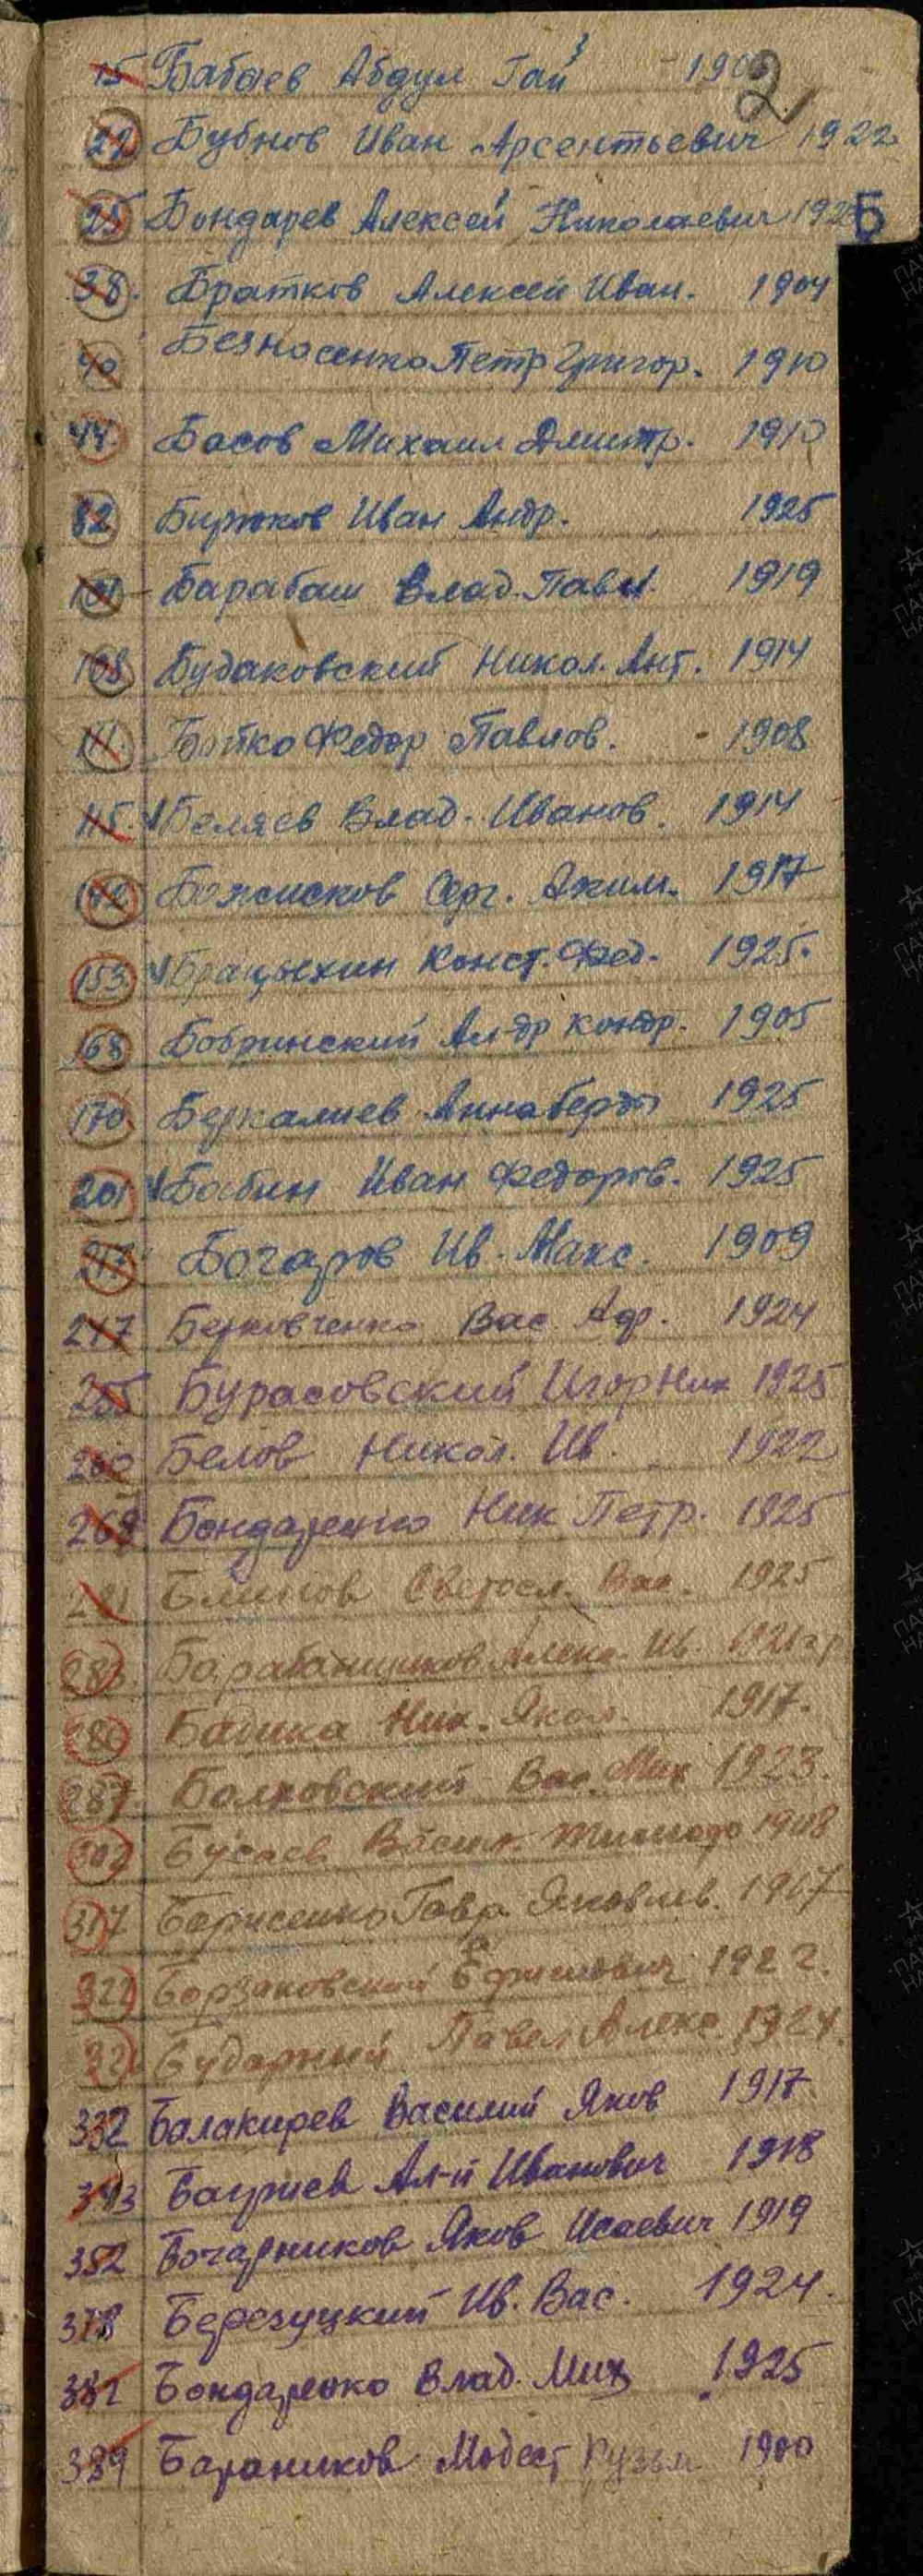 15 Бабаев Абдул Гай 190
2
22 Бубнов Иван Арсентьевич 1922
25 Бондарев Алексей Николаевич 192
Б
38. Братков Алексей Иван. 1904
40 Безносенко Петр Григор. 1910
44 Басов Михаил Дмитр. 1910
82 Бирюков Иван Андр. 1925
101 Барабаш Влад. Павл. 1919
108 Будаковский Никол. Ант. 1914
111. Бойко Федор Павлов. - 1908
115. Беляев Влад. Иванов. 1914
142 Божисков Серг. Аким. 1917
153 Брацыхин Конст. Фед. 1925.
168 Бобринский Ал-др Кондр. 1905
170 Беркалиев Аннаберды 1925
201 Бабин Иван Федоров. 1925
217 Бочаров Ив. Макс. 1909
247 Берковченко Вас. 1924
255 Бурасовский Игор Ник 1925
260 Белов Никол. Ив. 1922
269 Бондаренко Ник Петр. 1925
Блинов Вас. 1925
283. Барабанщиков Алекс. Ив. 1921 гр
286 Бадика Ник. Яковл. 1917.
287. Болховский Вас. Мих 1923.
302 Бусаев 1908
317 Борисенко Гавр. Яковлев. 1907
322 Борзаковский Ефимович 1922.
Бударный Павел Алекс. 1924.
332 Балакирев Василий Яков 1917
343 Ал-й Иванович 1918
352 Бочарников Яков Исаевич 1919
378 Березуцкий Ив. Вас. 1924.
381 Бондаренко Влад. Мих 1925
389 Бараников Модест Кузьм 1900